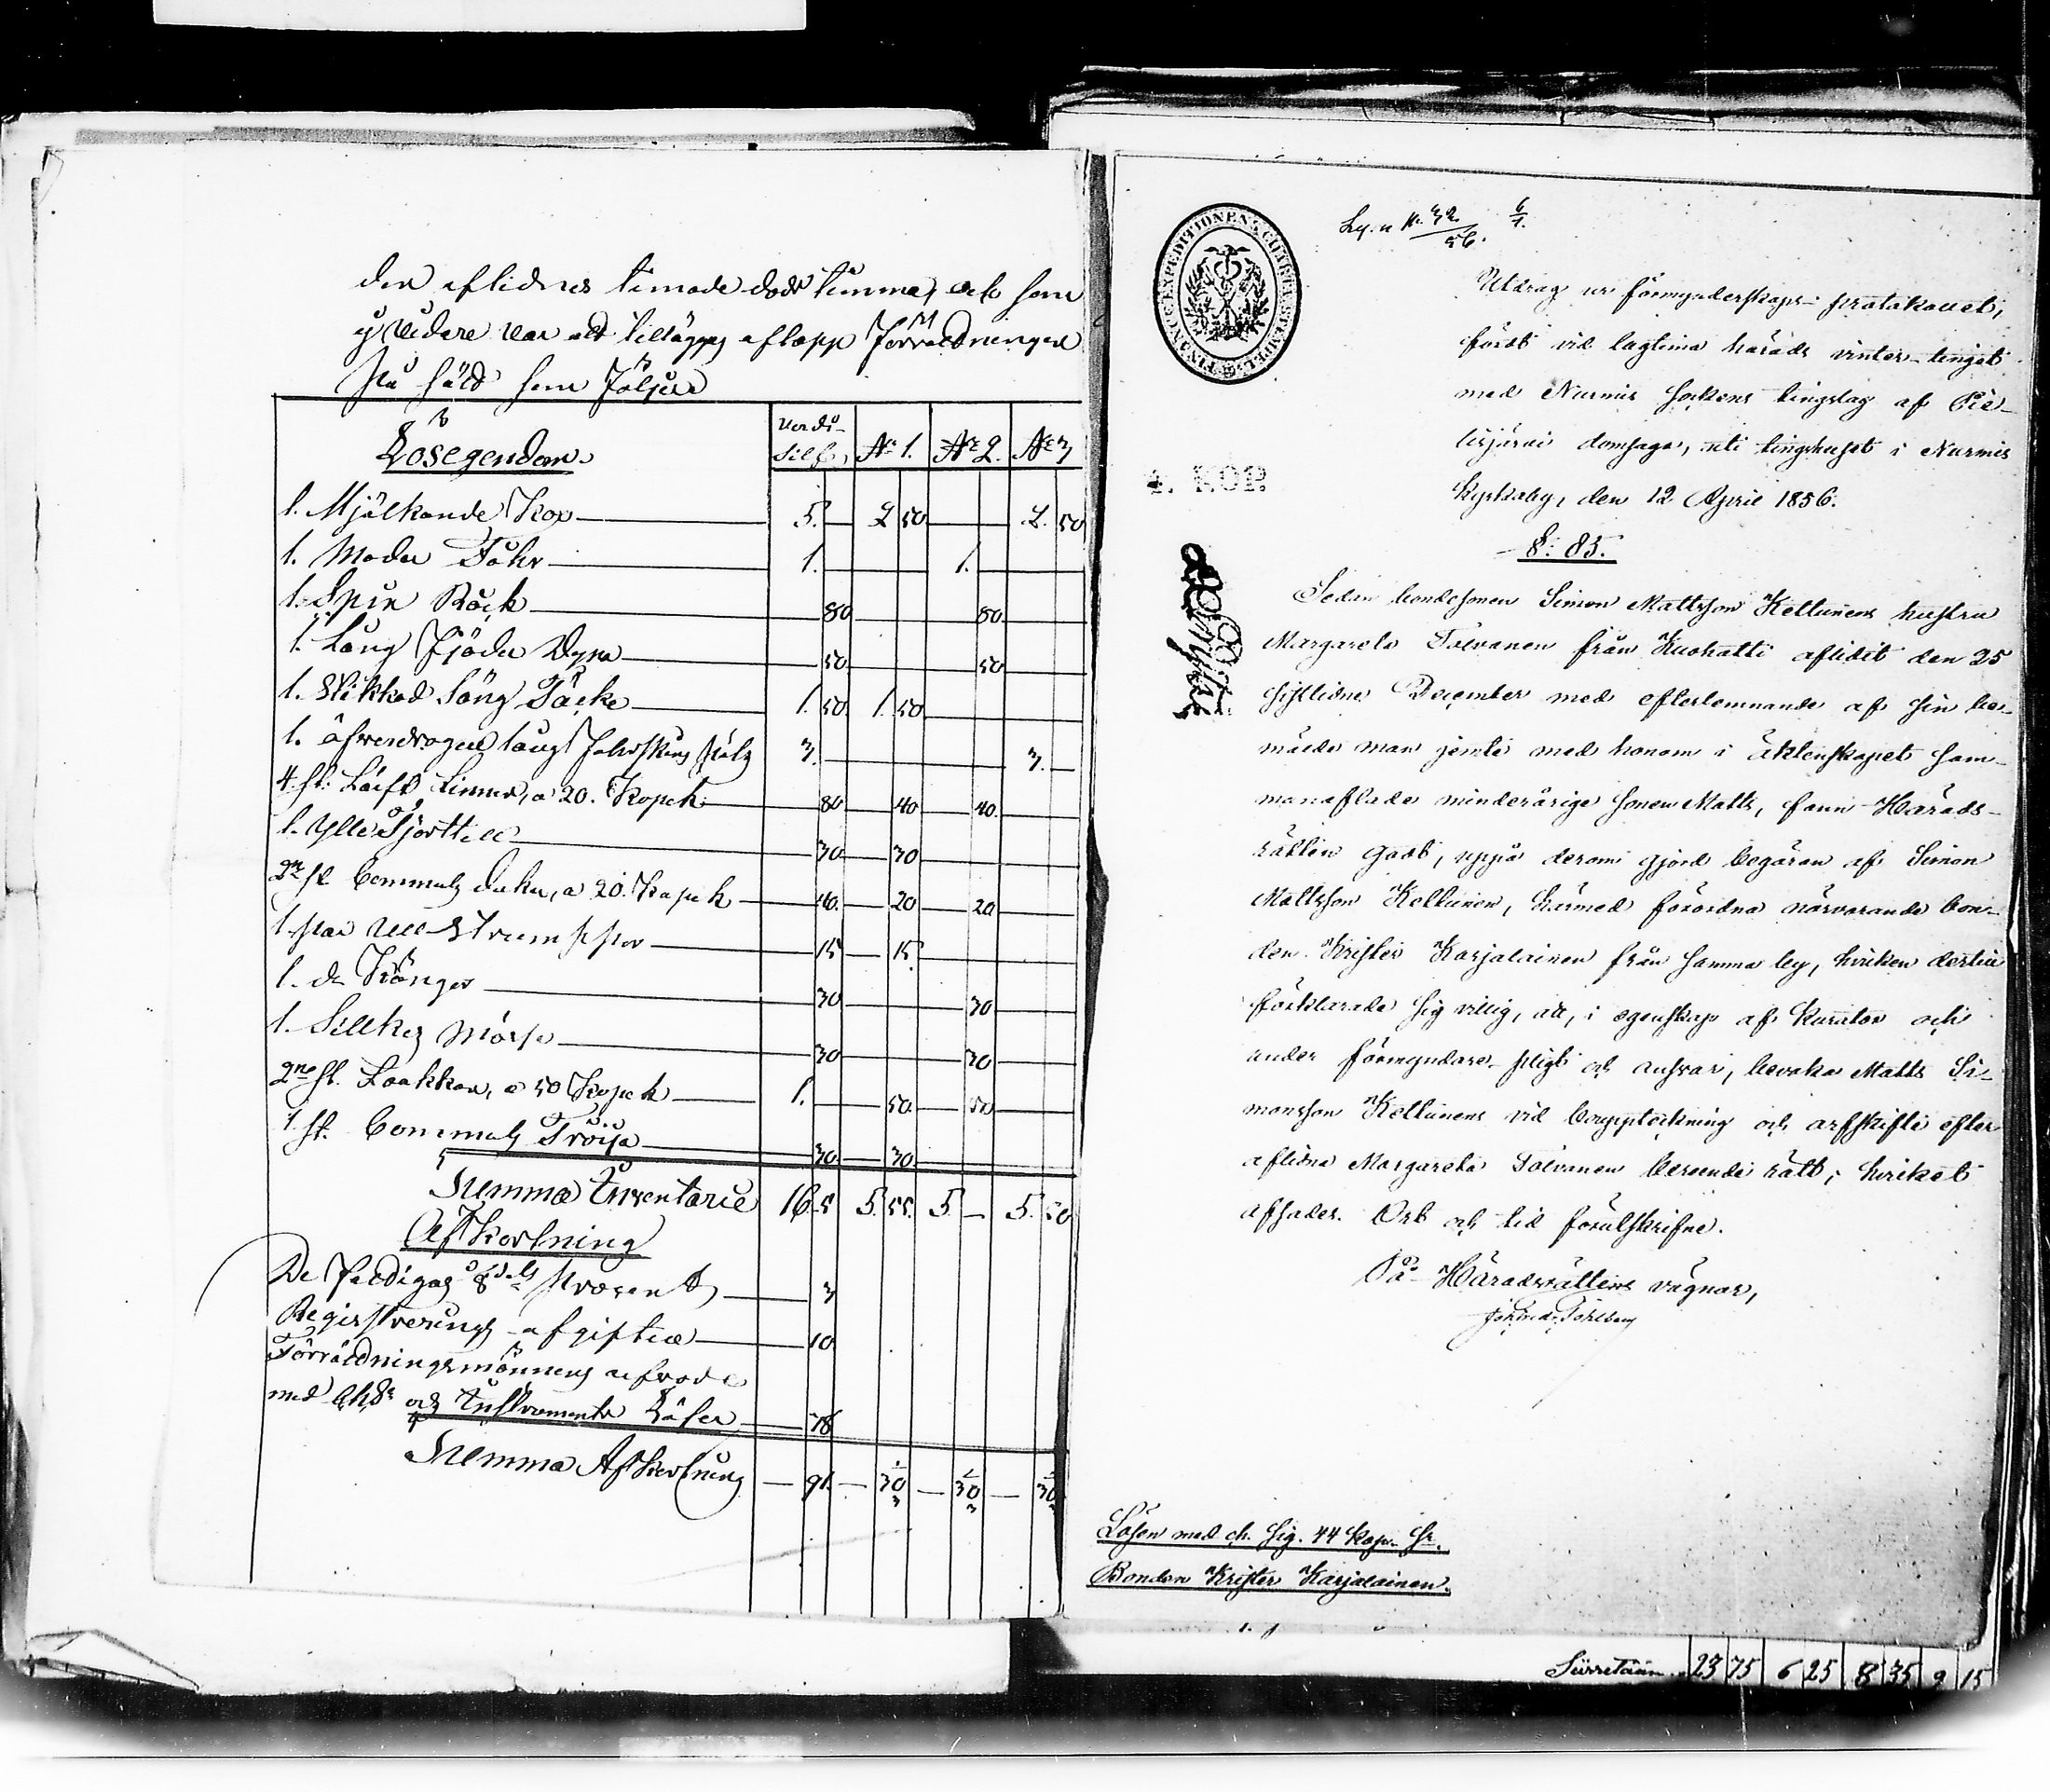 den aflidnes timade döds timma, och som
ej vidare var att tillägga aflopp förrättningen
på sätt som följer
Lösegendom. Värde Silf. No 1. No 2. No 3
1. Mjölkande Ko 5. — 2 50 2. 50
1. Moder Fåhr 1. 1.
1. Spin Råck 80 80
1. Lång fjäder Dyna 50 50
1. Stikkad Säng Täcke 1. 50 1. 50
1. öfverdragen lång fahrskins päls 3. 3. —
4. st. Lärft Linnen, a 20. Kopek 80 40 40
1. Ylle Tjorttill 30 30
2ne st Bommuls dukar, a 20. Kopek 40. 20 20
1. par Ull Strumppor 15 15
1. do Kängor 30 30
1. Sillkes Mössa 30 30
2ne st. Laakkan, a 50 Kopek 1. 50. 50
1. st. Bommuls Tröija 30 30
Summa Inventarie 16 5 5. 55. 5. — 5. 50
Afkortning
De fattigas 8dels procent 3
Registrerings afgiften 10
Förrättningsmännens arfvode
med Ch. Sr och Instruments Lösen 78
Summa Afkortning — 91. — 30 1/3 — 30 1/3 — 30 1/3
FINANCE-EXPEDITIONENS CHARTÆ STEMPEL
6/7.
Utdrag ur förmynderskaps-protokollet,
fördt vid lagtima härads vinter-tinget
med Nurmis sockens tingslag af Pie-
lisjärvi domsaga, uti tingshuset i Nurmis
kyrkoby, den 12 April 1856.
4. KOP.
§: 85.
Sedan bondesonen Simon Mattsson Kettunens hustru
Margareta Tolvanen från Kuohatti aflidit den 25
sistlidne December med efterlemnande af sin be-
mälde man jemte med honom i äktenskapet sam-
manaflade minderårige sonen Matts, fann Härads-
rätten godt, uppå derom gjord begäran af Simon
Mattsson Kettunen, härmed förordna närvarande bon-
den Krister Karjalainen från samma by, hvilken dertill
förklarade sig villig, att, i egenskap af kurator och
under förmyndare-pligt och ansvar, bevaka Matts Si-
monsson Kettunens vid bouppteckning och arfskifte efter
aflidna Margareta Tolvanen beroende rätt; hvilket
afsades. Ort och tid förutskrifne.
På Häradsrättens vägnar,
Lösen med ch. sig. 44 kop. Sr.
Bonden Krister Karjalainen.
Siirretään 23 75 6 25 8 35 9 15